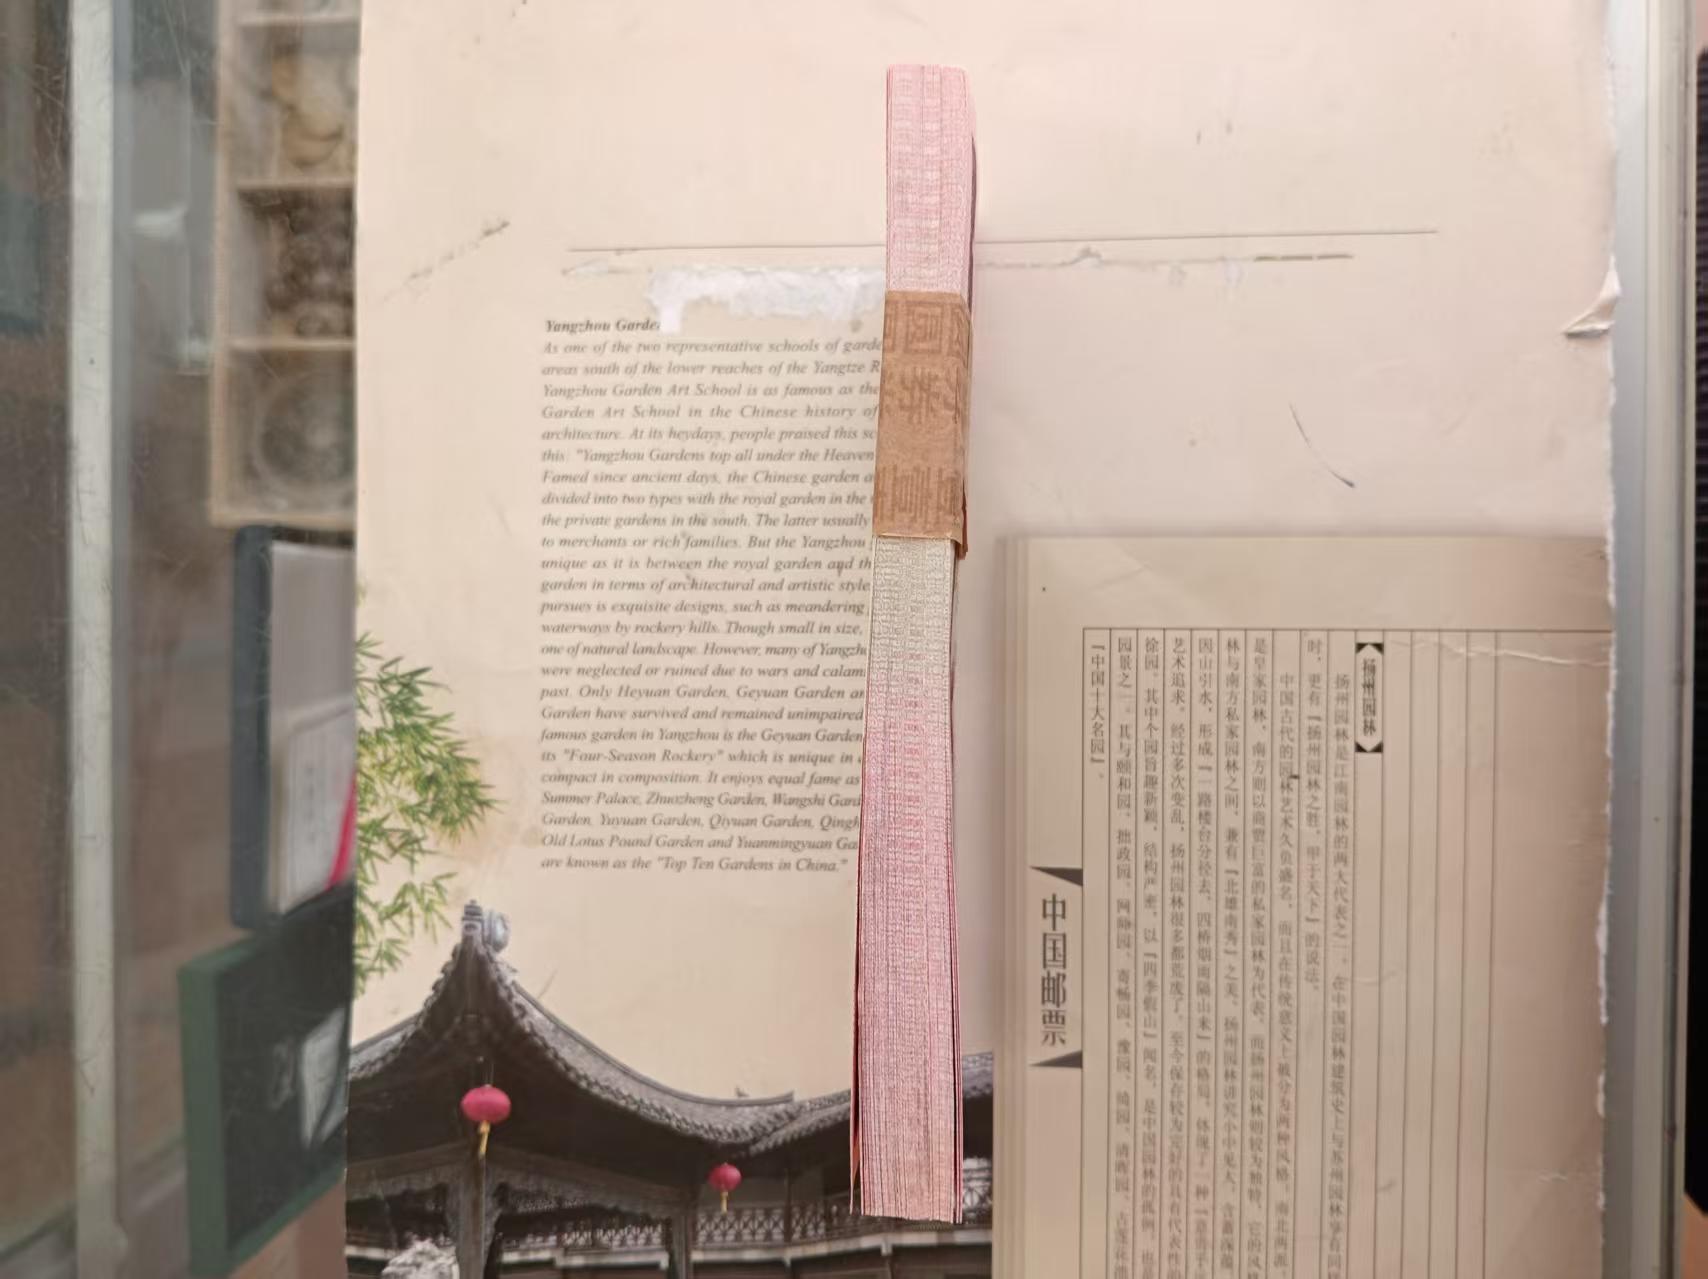 Yangzhou Garde
As one of the two representative schools of garde
areas south of the lower reaches of the Yangtze R
Yangzhou Garden Art School is as famous as the
Garden Art School in the Chinese history of
architecture. At its heydays, people praised this sc
this: "Yangzhou Gardens top all under the Heaven
Famed since ancient days, the Chinese garden a
divided into two types with the royal garden in the
the private gardens in the south. The latter usually
to merchants or rich families. But the Yangzhou
unique as it is between the royal garden and th
garden in terms of architectural and artistic style
pursues is exquisite designs, such as meandering
waterways by rockery hills. Though small in size,
one of natural landscape. However, many of Yangzh
were neglected or ruined due to wars and calam
past. Only Heyuan Garden, Geyuan Garden an
Garden have survived and remained unimpaired
famous garden in Yangzhou is the Geyuan Garden
its "Four-Season Rockery" which is unique in
compact in composition. It enjoys equal fame as
Summer Palace, Zhuozheng Garden, Wangshi Gard
Garden, Yuyuan Garden, Qiyuan Garden, Qingh
Old Lotus Pound Garden and Yuanmingyuan Ga
are known as the "Top Ten Gardens in China."
扬州园林
扬州园林是江南园林的两大代表之一，在中国园林建筑史上与苏州园林享有同
时，更有『扬州园林之胜，甲于天下』的说法。
中国古代的园林艺术久负盛名，而且在传统意义上被分为两种风格，南北两派，
是皇家园林，南方则以商贾巨富的私家园林为代表。而扬州园林则较为独特，它的风格
林与南方私家园林之间，兼有『北雄南秀』之美。扬州园林讲究小中见大，含蓄深蕴，
因山引水，形成『一路楼台分径去，四桥烟雨隔山来』的格局，体现了一种『意
艺术追求。经过多次变乱，扬州园林很多都荒废了。至今保存较为完好的具有代表性的
徐园，其中个园旨趣新颖，结构严密，以『四季假山』闻名，是中国园林的孤例，也是
园景之一。其与颐和园、拙政园、网师园、寄畅园、豫园、绮园、清晖园、古莲花池
『中国十大名园』。
中国邮票